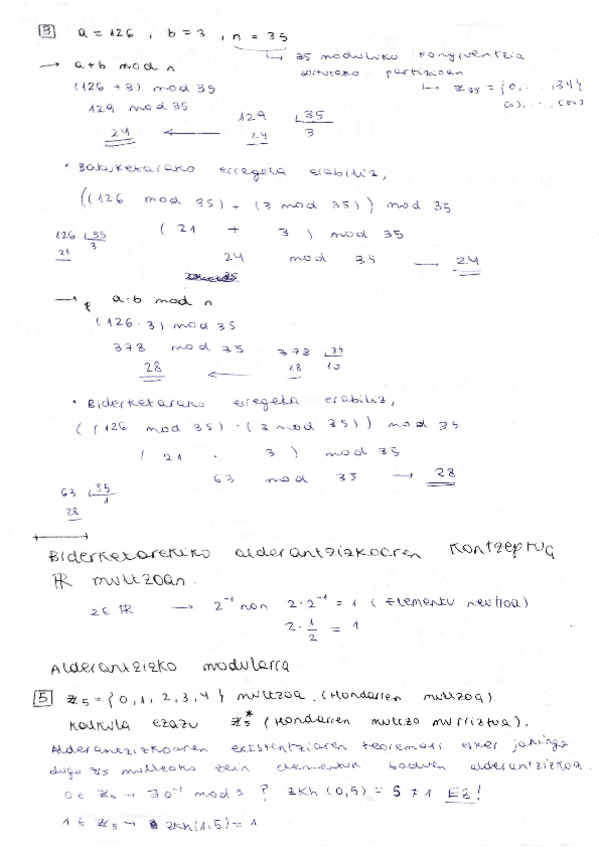 3 a = 126 , b = 3 , n = 35
→ 35 moduluko kongruentzia
→ a+b mod n
sorturako partizioan
(126 + 3) mod 35
→ Z35 = {0, ..., 34}
129 mod 35
129 | 35
24 ← 24 3
• Batuketarako erregela erabiliz,
((126 mod 35) + (3 mod 35)) mod 35
126 | 35 ( 21 + 3 ) mod 35
21 3
24 mod 35 → 24
→ a·b mod n
(126·3) mod 35
378 mod 35 378 | 35
28 ← 28 10
• Biderketarako erregela erabiliz,
((126 mod 35)·(3 mod 35)) mod 35
( 21 · 3 ) mod 35
63 mod 35 → 28
63 | 35
28 1
Biderketarekiko alderantzizkoaren kontzeptua
ℝ multzoan.
2 ∈ ℝ → 2⁻¹ non 2·2⁻¹ = 1 (Elementu neutroa)
2·1/2 = 1
Alderantzizko modularra
5 Z5 = {0, 1, 2, 3, 4} multzoa. (Hondarren multzoa)
Kalkula ezazu Z5* (Hondarren multzo murriztua).
Alderantzizkoaren existentziaren teoremari esker jakingo
dugu Z5 multzoko zein elementuk baduen alderantzizkoa.
0 ∈ Z5 → ∃ 0⁻¹ mod 5 ? zkh (0,5) = 5 ≠ 1 Ez!
1 ∈ Z5 → zkh(1,5) = 1